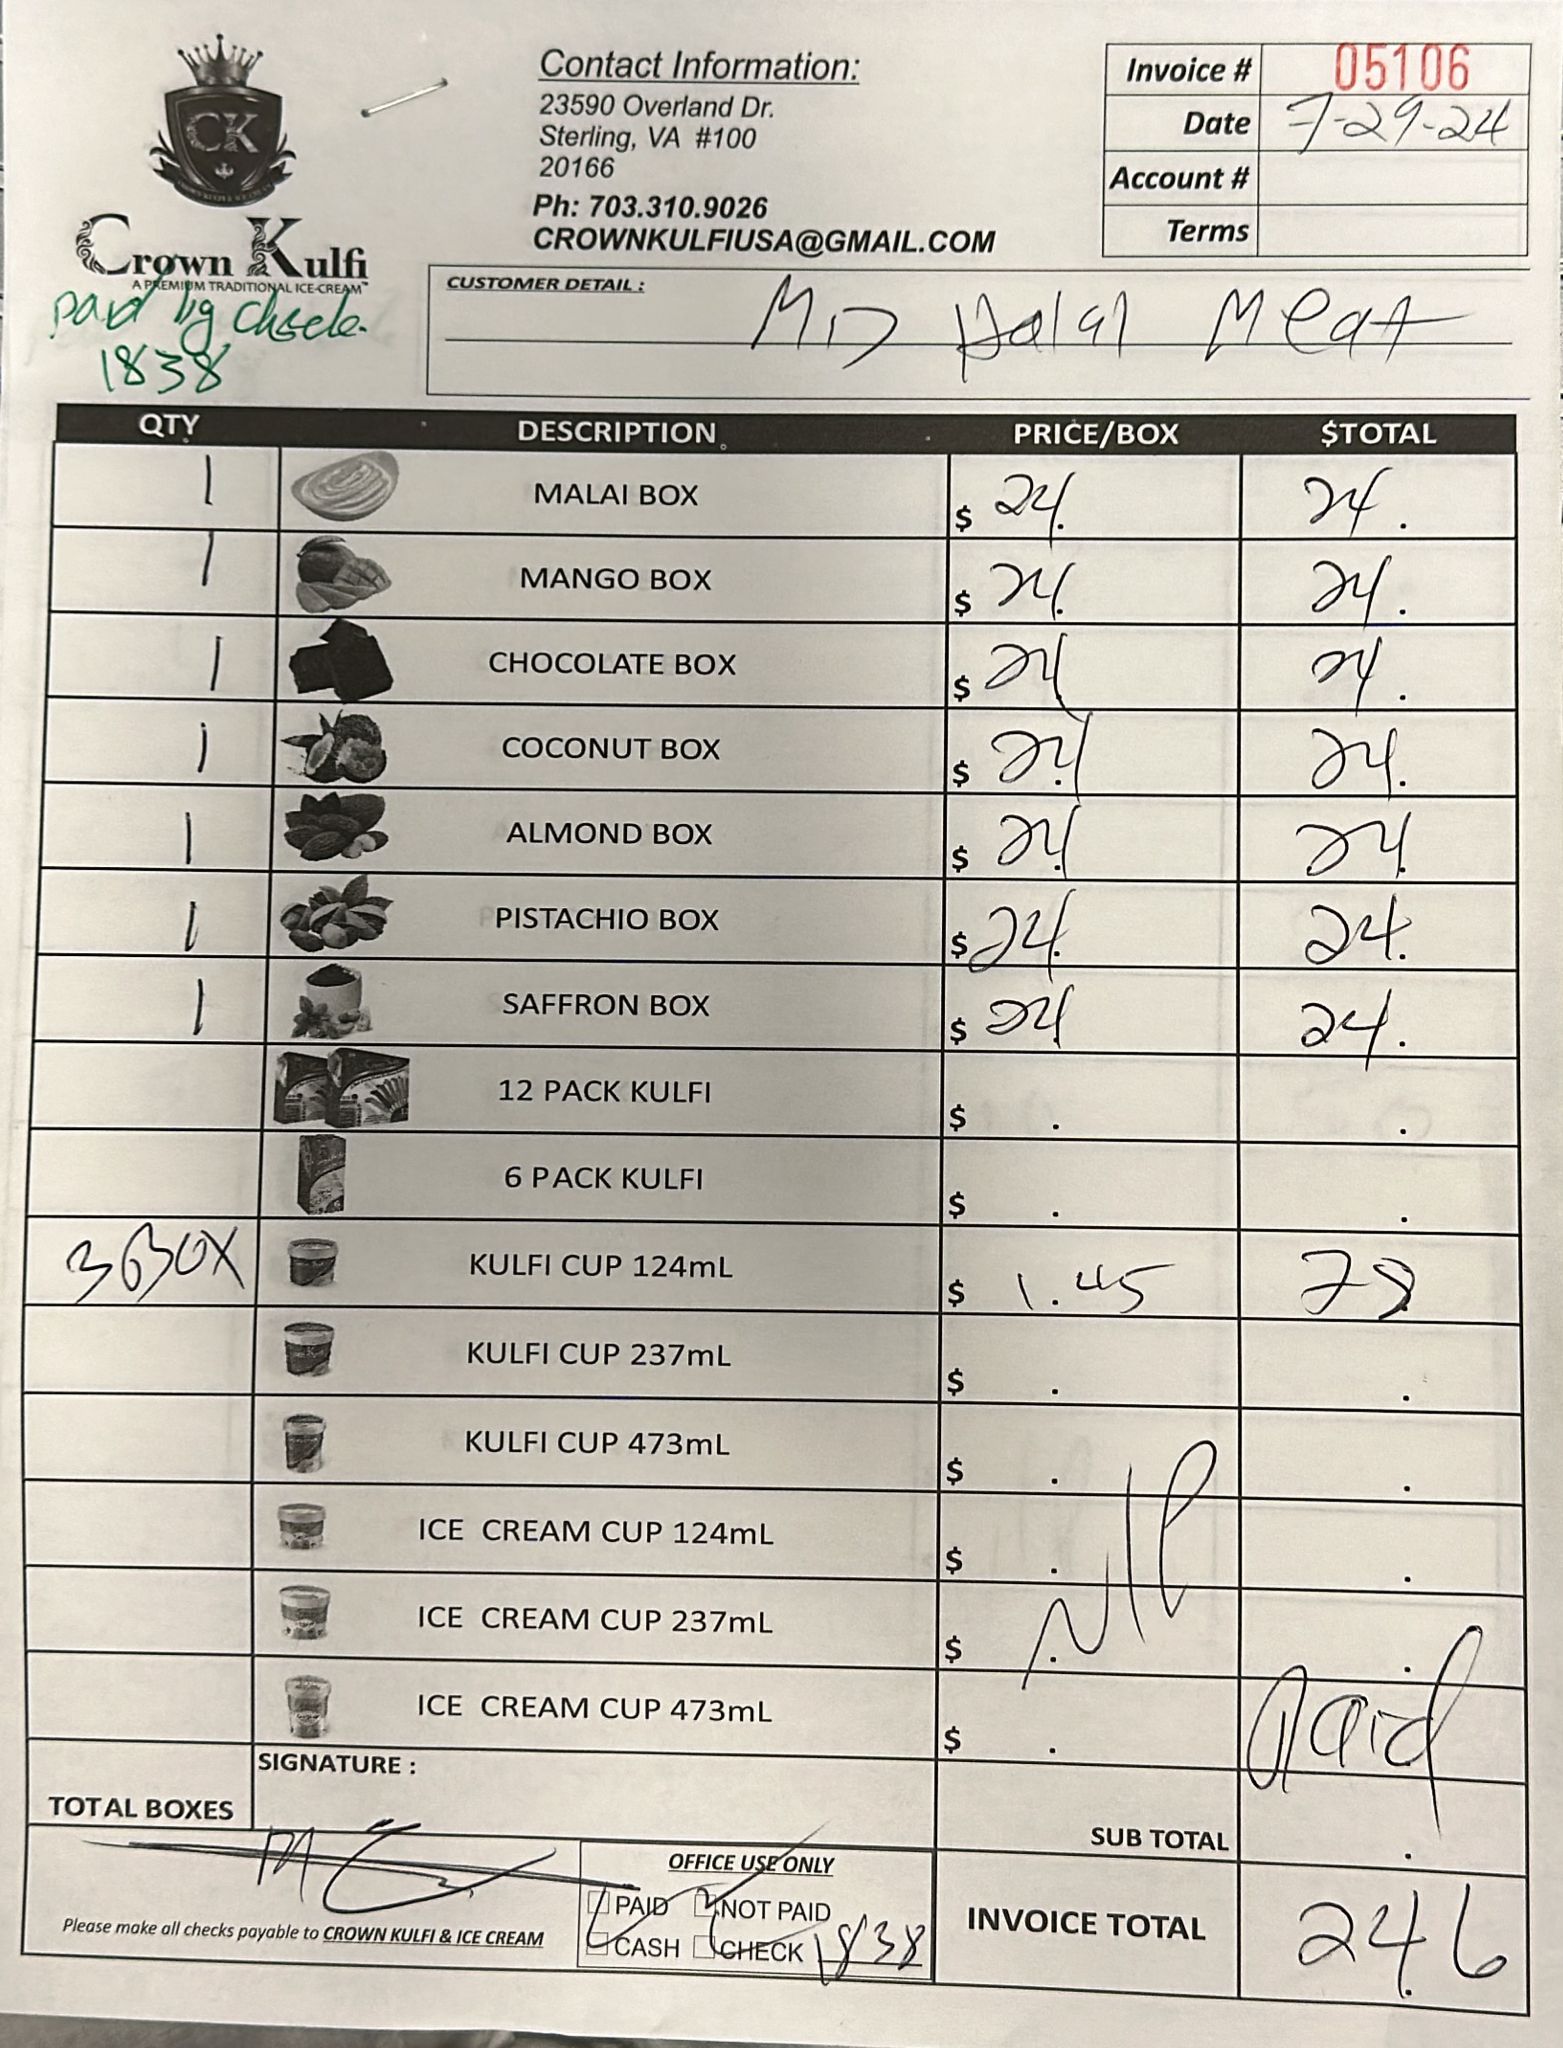 CK
Crown Kulfi
A PREMIUM TRADITIONAL ICE-CREAM™
paid by check.
1838
Contact Information:
23590 Overland Dr.
Sterling, VA #100
20166
Ph: 703.310.9026
CROWNKULFIUSA@GMAIL.COM
Invoice # 05106
Date 7-29-24
Account #
Terms
CUSTOMER DETAIL :
MD Halal Meat
QTY DESCRIPTION PRICE/BOX $TOTAL
1 MALAI BOX $ 24. 24.
1 MANGO BOX $ 24. 24.
1 CHOCOLATE BOX $ 24 24.
1 COCONUT BOX $ 24. 24.
1 ALMOND BOX $ 24. 24.
1 PISTACHIO BOX $ 24. 24.
1 SAFFRON BOX $ 24 24.
12 PACK KULFI $ . .
6 PACK KULFI $ . .
3 BOX KULFI CUP 124mL $ 1.45 78.
KULFI CUP 237mL $ . .
KULFI CUP 473mL $ . .
ICE CREAM CUP 124mL $ . .
ICE CREAM CUP 237mL $ . .
ICE CREAM CUP 473mL $ .
Paid
SIGNATURE :
TOTAL BOXES
SUB TOTAL .
OFFICE USE ONLY
PAID NOT PAID
CASH CHECK 1838
Please make all checks payable to CROWN KULFI & ICE CREAM
INVOICE TOTAL 246